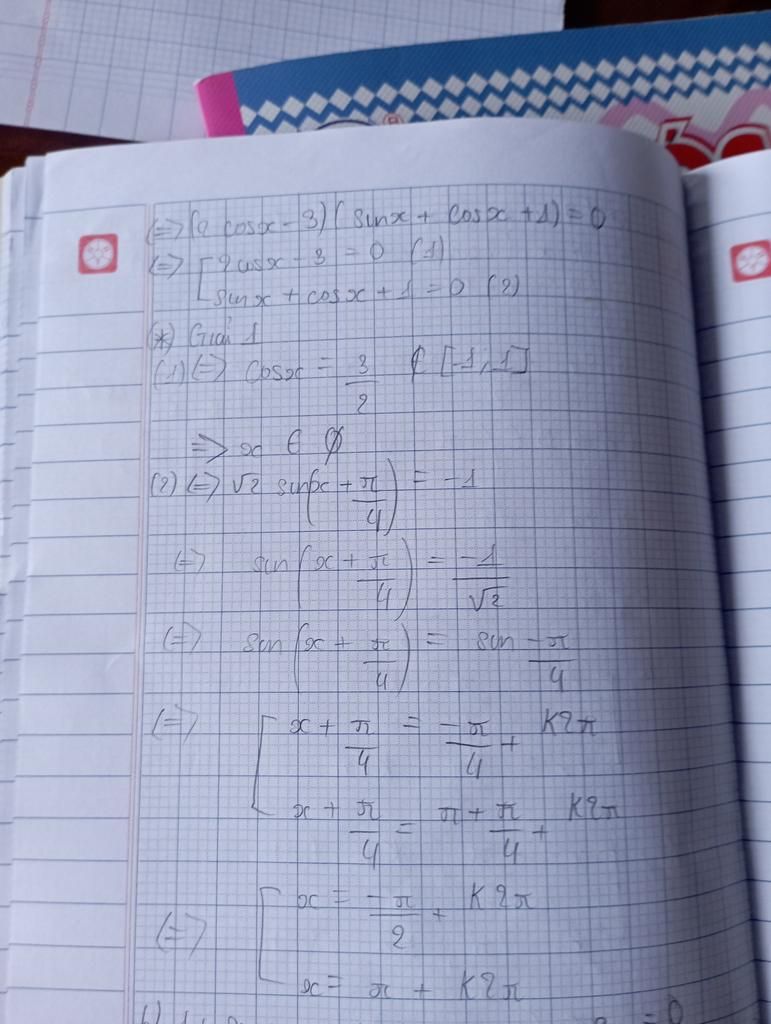 <=> (2 cosx - 3)( sinx + cosx + 1) = 0
<=> [ 2cosx - 3 = 0 (1)
sinx + cosx + 1 = 0 (2)
(*) Giải 1
(1) <=> cosx = 3/2 ∉ [-1, 1]
=> x ∈ ∅
(2) <=> √2 sin(x + π/4) = -1
<=> sin(x + π/4) = -1/√2
<=> sin(x + π/4) = sin -π/4
<=> [ x + π/4 = -π/4 + k2π
x + π/4 = π + π/4 + k2π
<=> [ x = -π/2 + k2π
x = π + k2π